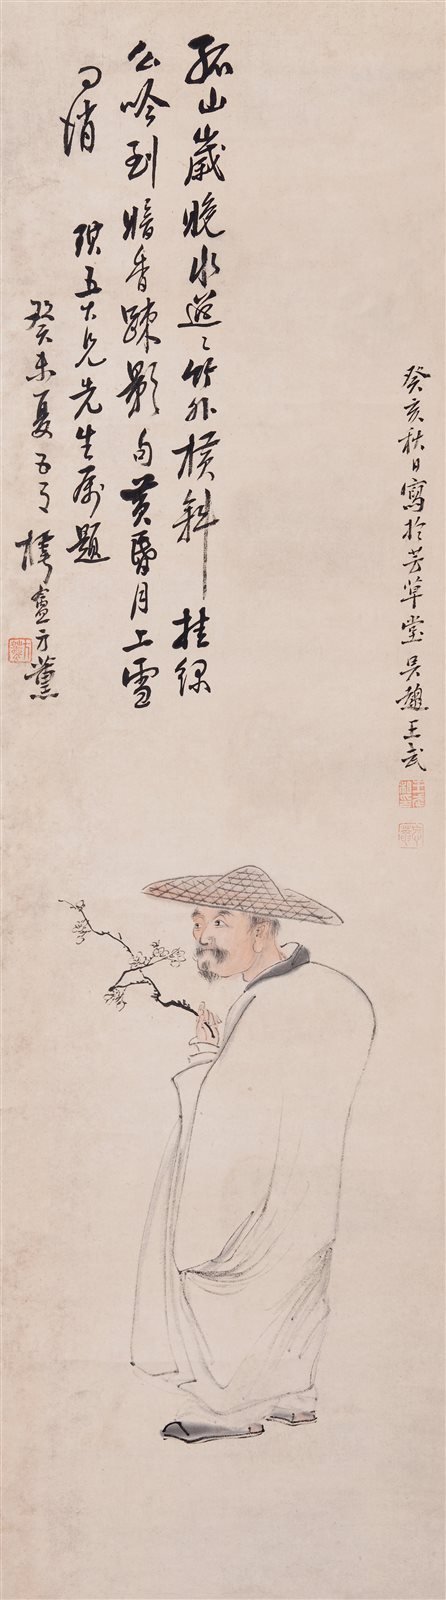 癸亥秋日寫於芳草堂吳趨王武
孤山歲晚水迢〻竹外橫斜挂綠
么吟到暗香踈影句黃昏月上雪
消
五大兄先生屬題
癸未夏五月樗盦方薰